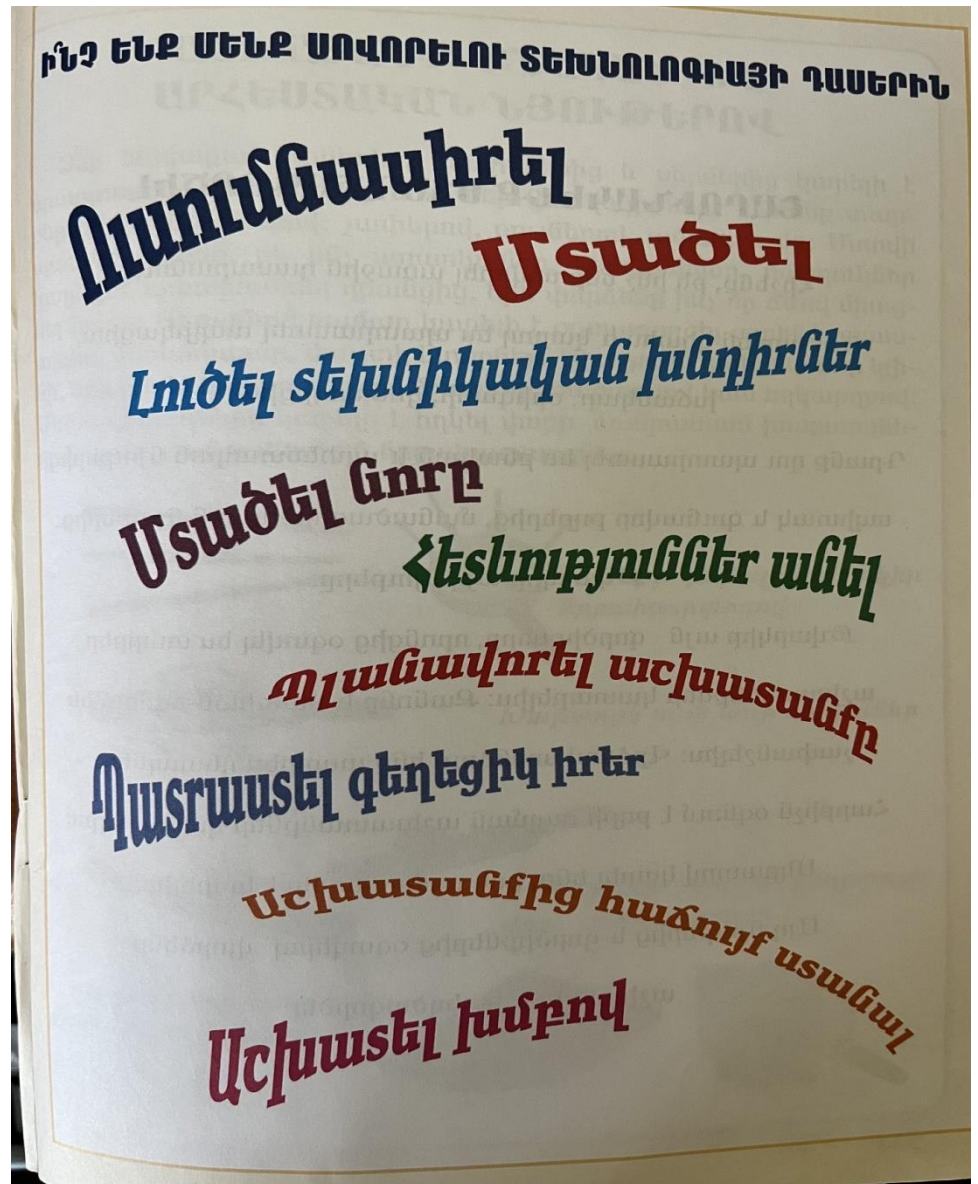 Ի՞ՆՉ ԵՆՔ ՄԵՆՔ ՍՈՎՈՐԵԼՈՒ ՏԵԽՆՈԼՈԳԻԱՅԻ ԴԱՍԵՐԻՆ
Ուսումնասիրել
Մտածել
Լուծել տեխնիկական խնդիրներ
Մտածել նորը
Հետևություններ անել
Պլանավորել աշխատանքը
Պատրաստել գեղեցիկ իրեր
Աշխատանքից հաճույք ստանալ
Աշխատել խմբով